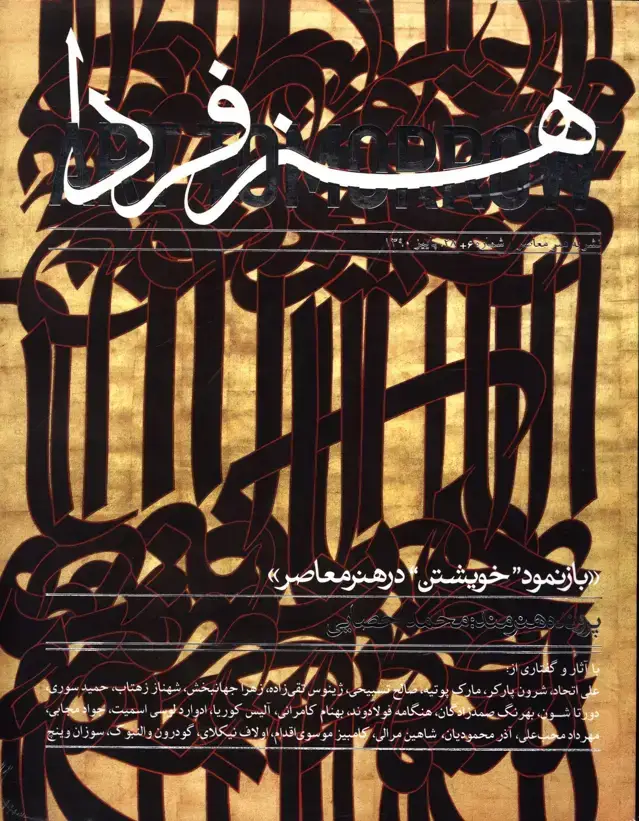 هنر فردا
ART TOMORROW
نشریه هنر معاصر / شماره ۶+۰ / پاییز ۱۳۹۰
«بازنمود "خویشتن" در هنر معاصر»
پرونده هنرمند: محمد احصایی
با آثار و گفتاری از:
علی اتحاد، شرون پارکر، مارک پوتیه، صالح تسبیحی، ژینوس تقی‌زاده، زهرا جهانبخش، شهناز زهتاب، حمید سوری،
دورتا شون، بهرنگ صمدزادگان، هنگامه فولادوند، بهنام کامرانی، آلیس کوریا، ادوارد لوسی اسمیت، جواد مجابی،
مهرداد محب‌علی، آذر محمودیان، شاهین مرالی، کامبیز موسوی‌اقدام، اولاف نیکلای، کودرون والنبوک، سوزان وینچ